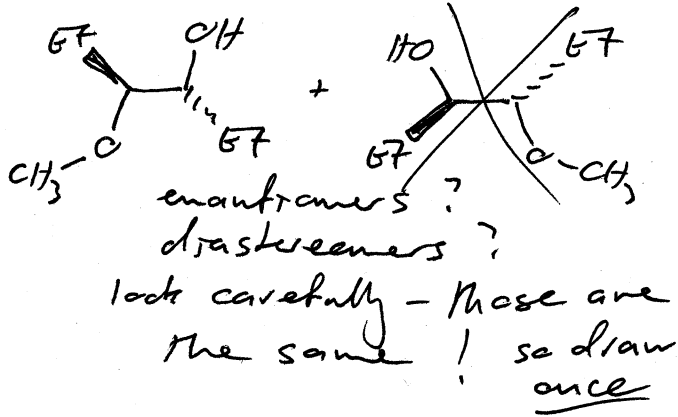 Et OH + HO Et
Et Et
CH3 O O CH3
enantiomers ?
diastereomers ?
look carefully - those are
the same ! so draw
once